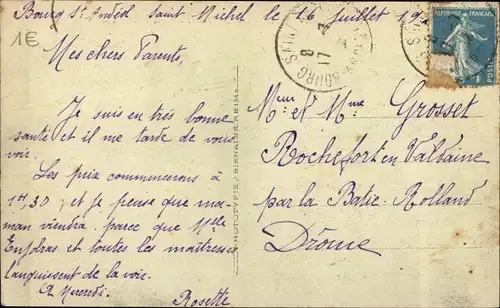 1€
Bourg St Andéol Saint Michel le 16 Juillet 19
Mes chers Parents,
Je suis en très bonne
santé et il me tarde de vous
voir.
Les prix commencerons à
14,30 ; et je pense que ma-
man viendra parce que Mlle
Enjolras et toutes les maitresses
languissent de la voir.
A Mercredi.
Rosette
PHOTOTYPIE J. BIENAIMÉ, REIMS
BOURG S
17
8
RÉPUBLIQUE FRANÇAISE
POSTES
Mr et Mme Grosset
Rochefort en Valdaine
par la Batie-Rolland
Drôme